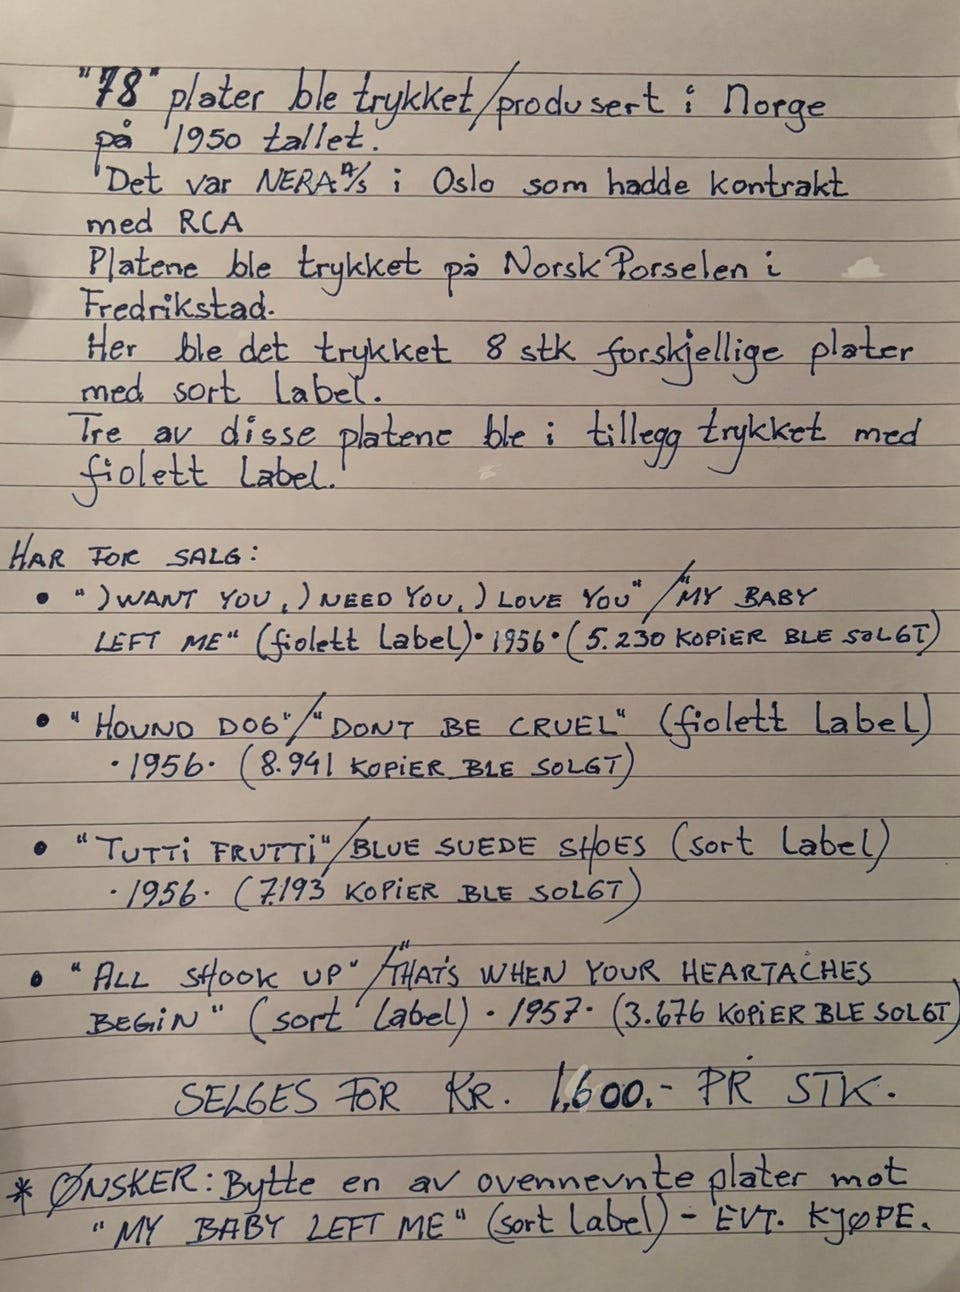 "78" plater ble trykket/produsert i Norge
på 1950 tallet.
Det var NERA A/S i Oslo som hadde kontrakt
med RCA
Platene ble trykket på Norsk Porselen i
Fredrikstad.
Her ble det trykket 8 stk forskjellige plater
med sort label.
Tre av disse platene ble i tillegg trykket med
fiolett label.
HAR FOR SALG:
• "I WANT YOU, I NEED YOU, I LOVE YOU"/"MY BABY
LEFT ME" (fiolett label) • 1956 • (5.230 KOPIER BLE SOLGT)
• "HOUND DOG"/"DONT BE CRUEL" (fiolett label)
• 1956 • (8.941 KOPIER BLE SOLGT)
• "TUTTI FRUTTI"/BLUE SUEDE SHOES (sort label)
• 1956 • (7.193 KOPIER BLE SOLGT)
• "ALL SHOOK UP"/"THAT'S WHEN YOUR HEARTACHES
BEGIN" (sort label) • 1957 • (3.676 KOPIER BLE SOLGT)
SELGES FOR KR. 1.600.- PR STK.
* ØNSKER: Bytte en av ovennevnte plater mot
"MY BABY LEFT ME" (sort label) - EVT. KJØPE.